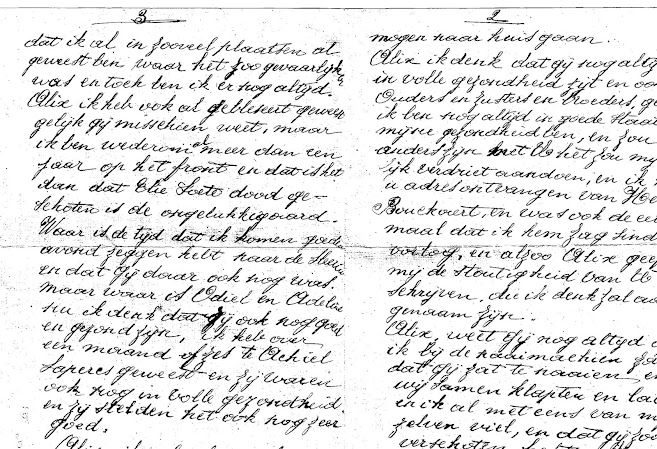 3
dat ik al in zooveel plaatsen al
geweest ben waar het zoo gevaarlijk
was en toch ben ik er nog altijd.
Alix ik heb ook al geblesseert geweest
gelijk gij misschien weet, maar
ik ben wederom al meer dan een
jaar op het front en dat is het
dan dat Elie Soete dood ge-
schoten is de ongelukkigaard.
Waar is de tijd dat ik komen goede
avond zeggen hebt naar de
en dat gij daar ook nog was.
maar waar is Odiel en Adeline
nu ik denk dat zij ook nog goed
en gezond zijn, ik heb over
een maand of zes te Achiel
Saperes geweest en zij waren
ook nog in volle gezondheid.
en zij stelden het ook nog zeer
goed.
2
mogen naar huis gaan.
Alix ik denk dat gij nog altijd
in volle gezondheid zijt en oo
Ouders en zusters en broeders, ge
ik ben nog altijd in goede
mijne gezondheid ben, en zou
anders zijn met U het zou mij
lijk verdriet aandoen, en ik
u adres ontvangen van
Bouckaert, en was ook de ee
maal dat ik hem zag sind
oorlog, en alzoo Alix
mij de stoutigheid van U
schrijven, du ik denk zal aa
genaam zijn.
Alix, weet gij nog altijd d
ik bij de naaimachien
dat gij zat te naaien, en
wij samen klapten en
en ik al met eens van m
zelven viel, en dat gij zo
verschoten